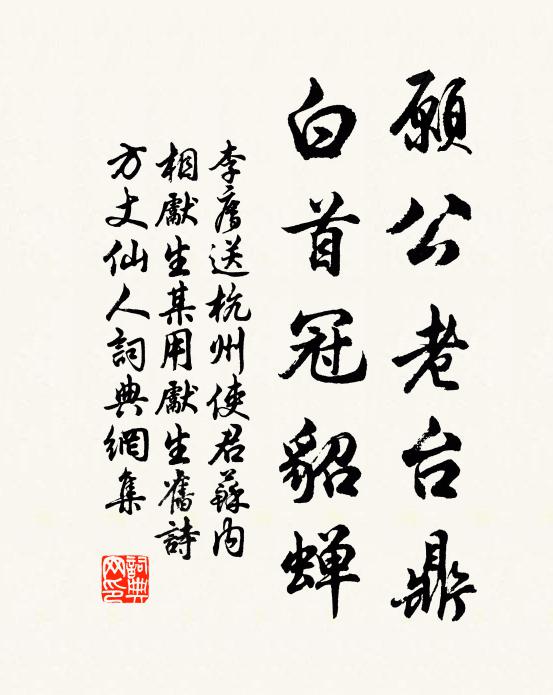 願公老台鼎
白首冠貂蝉
李廌送杭州使君蘇内
相獻生某用獻生舊詩
方丈仙人詞典網集
詞典网印